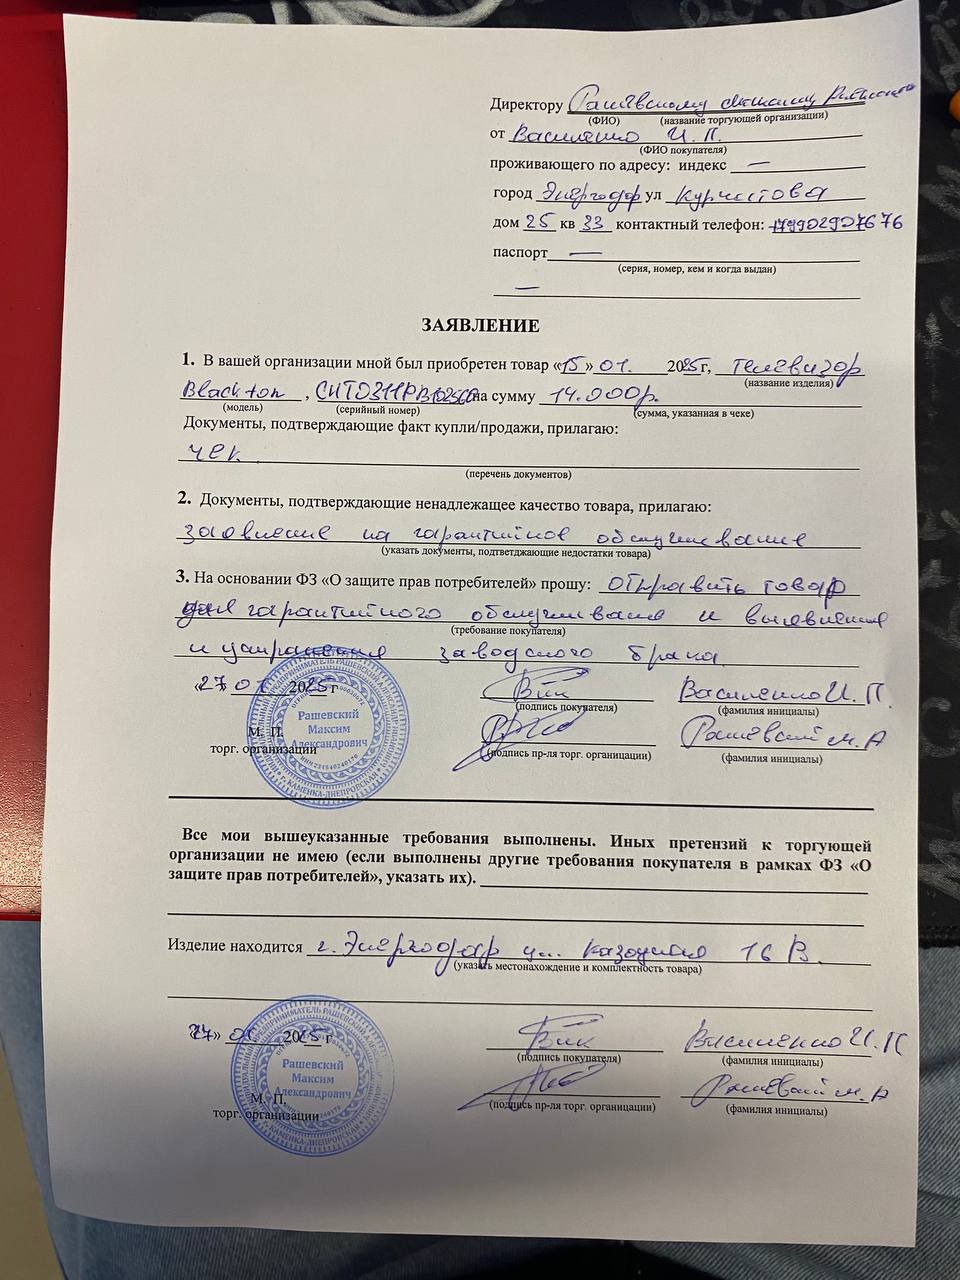 Директору Рашевскому
(ФИО) (название торгующей организации)
от Василенко И. П.
(ФИО покупателя)
проживающего по адресу: индекс —
город Энергодар ул Курчатова
дом 25 кв 33 контактный телефон: +79902907676
паспорт —
(серия, номер, кем и когда выдан)
—
ЗАЯВЛЕНИЕ
1. В вашей организации мной был приобретен товар «15» 01. 2025г, телевизор
(название изделия)
Blackton , на сумму 14.000р.
(модель) (серийный номер) (сумма, указанная в чеке)
Документы, подтверждающие факт купли/продажи, прилагаю:
чек
(перечень документов)
2. Документы, подтверждающие ненадлежащее качество товара, прилагаю:
заявление на гарантийное обслуживание
(указать документы, подтветджающие недостатки товара)
3. На основании ФЗ «О защите прав потребителей» прошу: отправить товар
для гарантийного обслуживания и выявления
(требование покупателя)
и устранения заводского брака
«27» 01 2025г Василенко И. П.
(подпись покупателя) (фамилия инициалы)
Рашевский
Максим
Александрович
М. П. Рашевский М. А
торг. организации (подпись пр-ля торг. организации) (фамилия инициалы)
ИНН 231840240170
г. КАМЕНКА-ДНЕПРОВСКАЯ
Все мои вышеуказанные требования выполнены. Иных претензий к торгующей
организации не имею (если выполнены другие требования покупателя в рамках ФЗ «О
защите прав потребителей», указать их).
Изделие находится г. Энергодар ул. Казацкая 16 В.
(указать местонахождение и комплектность товара)
27» 01 2025 г Василенко И. П
(подпись покупателя) (фамилия инициалы)
Рашевский
Максим
Александрович
М. П. Рашевский М. А
торг. организации (подпись пр-ля торг. организации) (фамилия инициалы)
г. КАМЕНКА-ДНЕПРОВСКАЯ